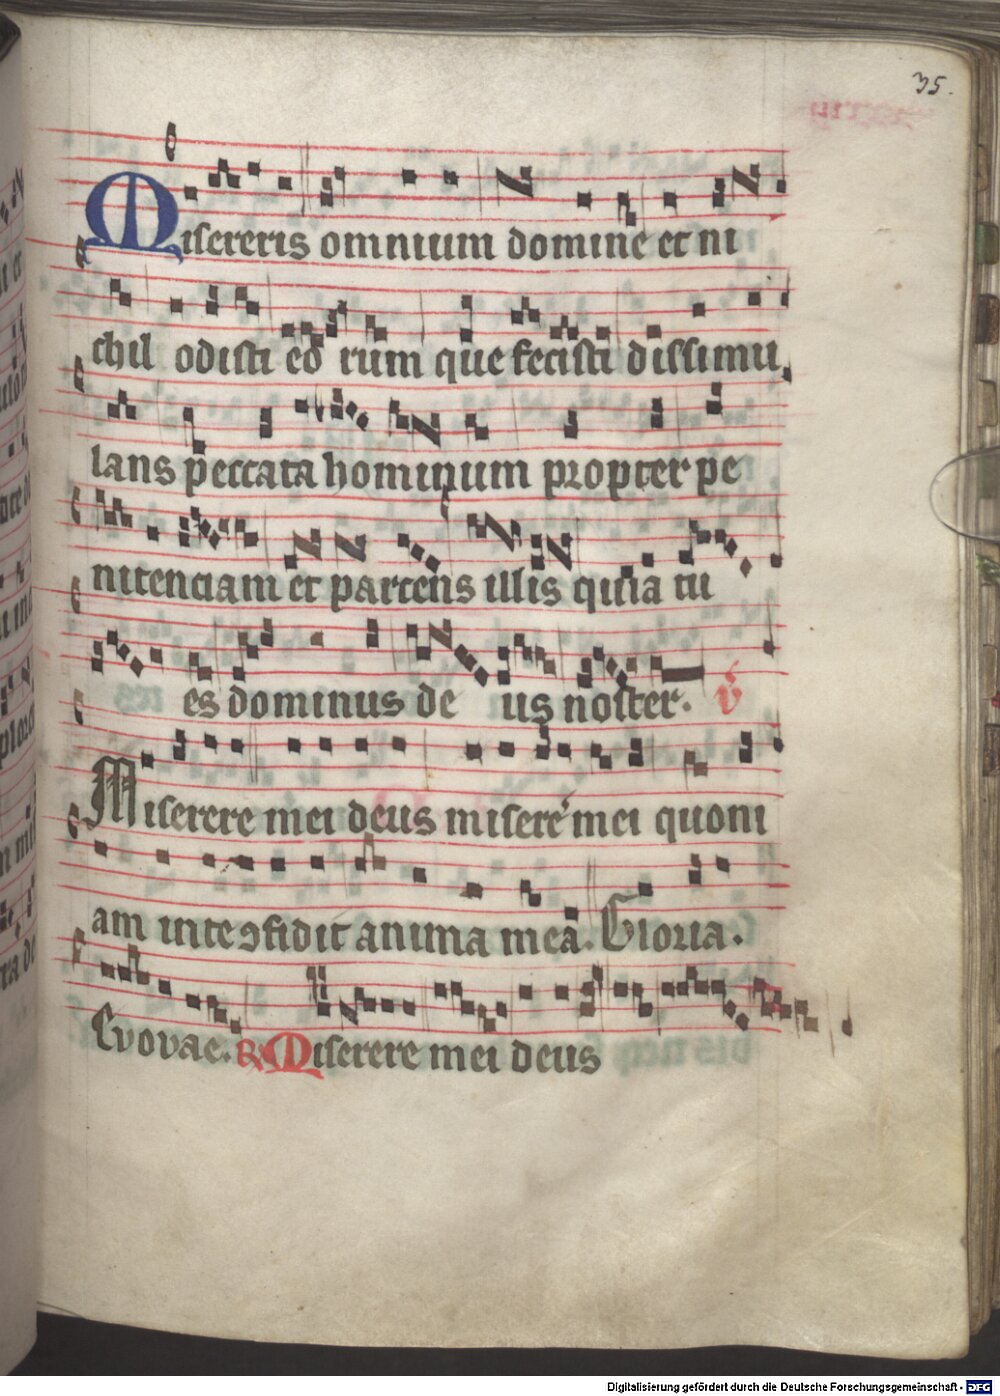 35.
Misereris omnium domine et ni
chil odisti eo rum que fecisti dissimu
lans peccata hominum propter pe
nitenciam et parcens illis quia tu
es dominus de us noster. v̍
Miserere mei deus miserere mei quoni
am in te ꝯfidit anima mea. Gloria.
Evovae. ℟ Miserere mei deus
Digitalisierung gefördert durch die Deutsche Forschungsgemeinschaft - DFG